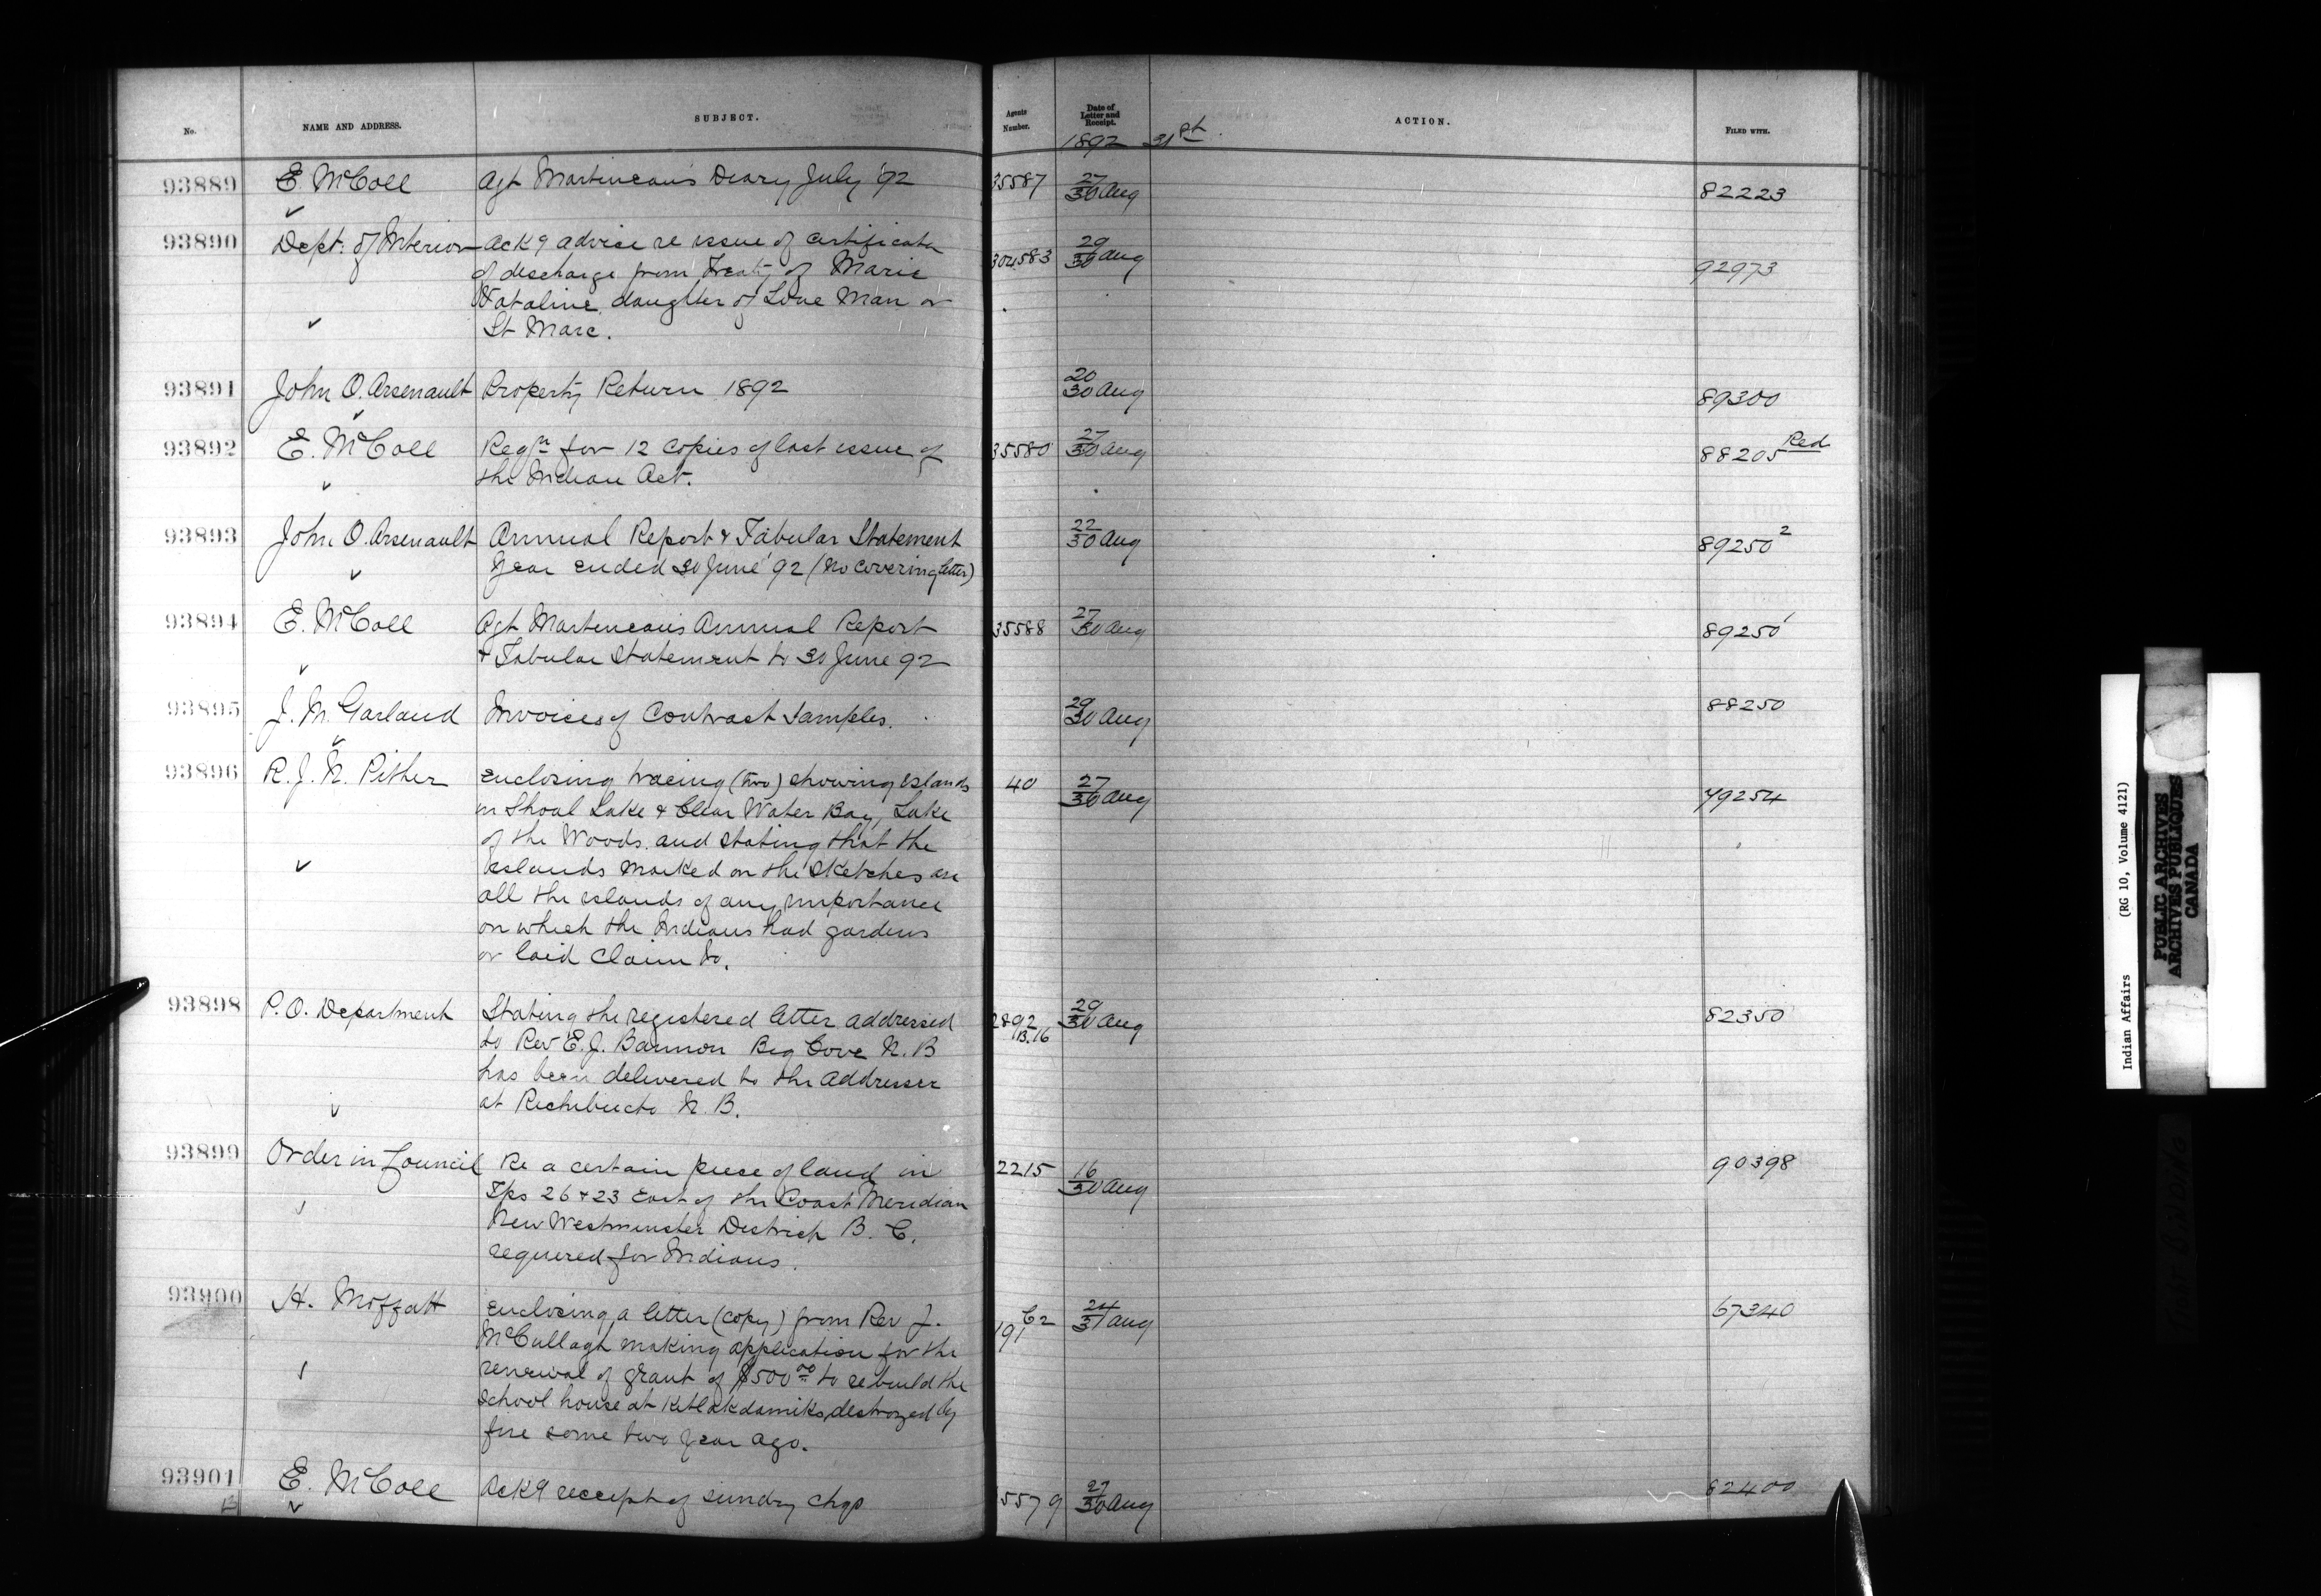 No.
NAME AND ADDRESS.
SUBJECT.
Agents Number.
Date of Letter and Receipt.
ACTION.
FILED WITH.
1892 31st.
93889 E McColl Agt Martineau's Diary July '92 35587 27/30 Aug 82223
93890 Dept: of Interior Ackg advice re issue of certificate 304583 29/30 Aug 92973
of discharge from Treaty of Marie
daughter of Lone Man or
St Marc.
93891 John O. Arsenault Property Return 1892 20/30 Aug 89300
93892 E. McColl Reqn for 12 copies of last issue of 35580 27/30 Aug 88205 Red
the Indian Act.
93893 John O. Arsenault Annual Report & Tabular Statement 22/30 Aug 89250 2
Year ended 30 June '92 (No covering letter)
93894 E. McColl Agt Martineau's Annual Report 35588 27/30 Aug 89250 1
& Tabular Statement to 30 June 92
93895 J. M. Garland Invoices of Contract Samples. 29/30 Aug 88250
93896 R. J. N. Pither Enclosing tracing (two) showing islands 40 27/30 Aug 79254
in Shoal Lake & Clear Water Bay, Lake
of the Woods. and stating that the
islands marked on the sketches are
all the islands of any importance
on which the Indians had gardens
or laid claim to.
93898 P. O. Department Stating the registered letter addressed 2892 B.16 29/30 Aug 82350
to Rev E. J. Bannon Big Cove N. B
has been delivered to the addressee
at Richibucto N. B.
93899 Order in Council Re a certain piece of land in 2215 16/30 Aug 90398
Tps 26 & 23 East of the Coast Meridian
New Westminster District B. C.
required for Indians.
93900 H. Moffatt Enclosing a letter (copy) from Rev J. 191 C2 24/31 Aug 67340
McCullagh making application for the
renewal of grant of $500 00 to rebuild the
school house at Kitlakdamiks, destroyed by
fire some two year ago.
93901 E. McColl Ackg receipt of sundry chqs 5579 27/30 Aug 82400
Indian Affairs (RG 10, Volume 4121)
PUBLIC ARCHIVES
ARCHIVES PUBLIQUES
CANADA